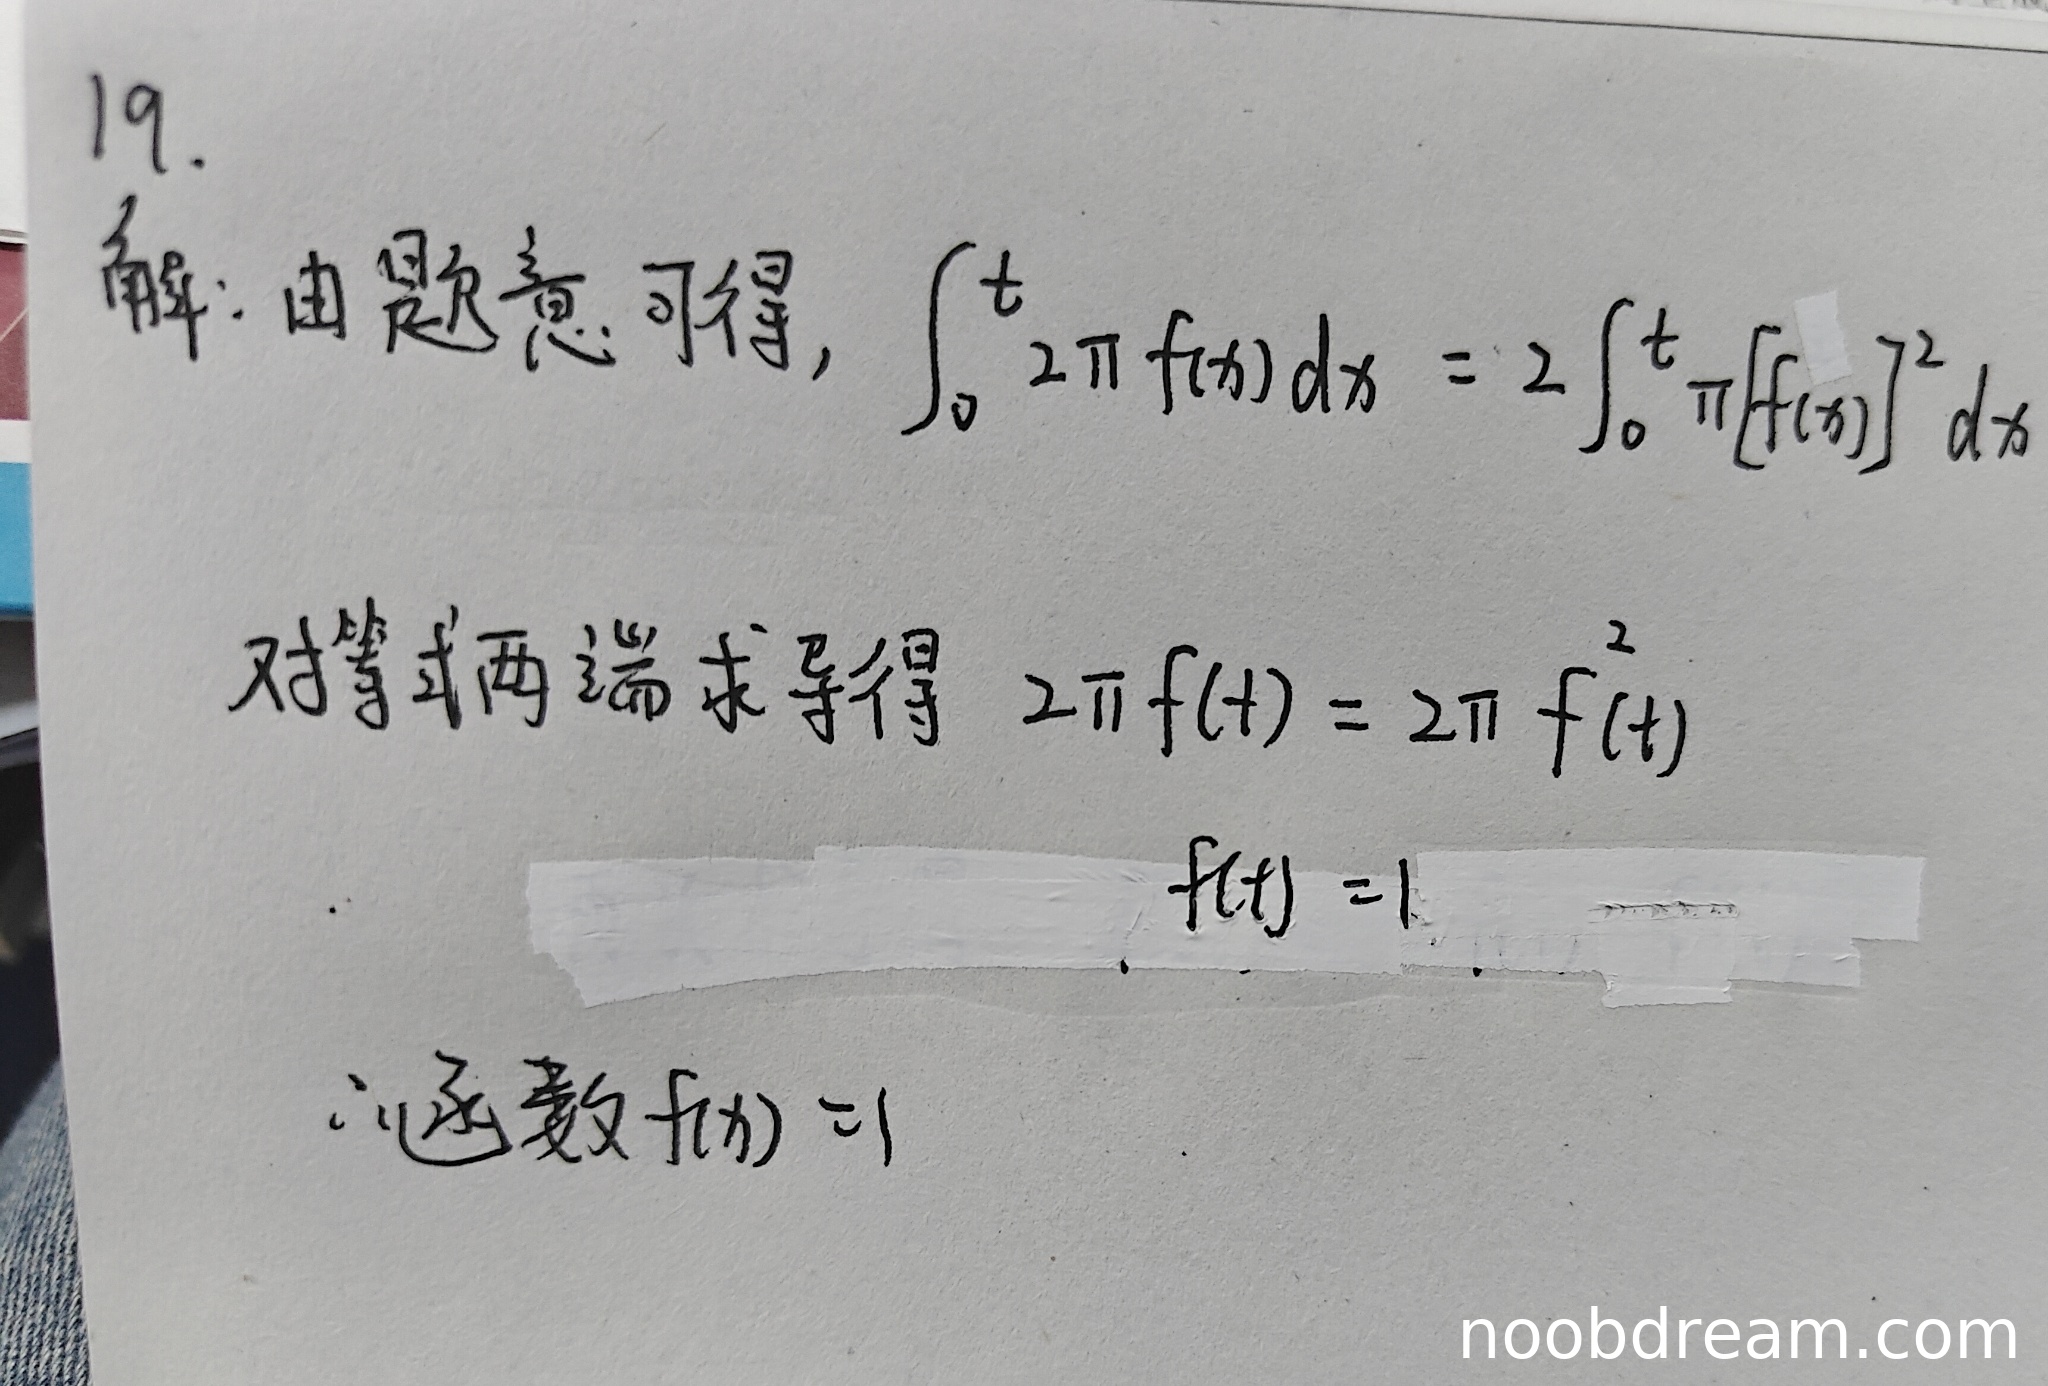 19.
解：由题意可得，∫₀ᵗ 2π f(x) dx = 2∫₀ᵗ π[f(x)]² dx
对等式两端求导得 2π f(t) = 2π f²(t)
f(t) = 1
∴函数 f(x) = 1
noobdream.com